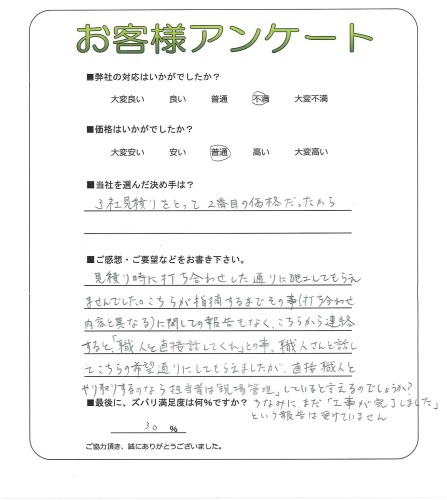 お客様アンケート
■弊社の対応はいかがでしたか？
大変良い 良い 普通 不満 大変不満
■価格はいかがでしたか？
大変安い 安い 普通 高い 大変高い
■当社を選んだ決め手は？
3社見積りをとって2番目の価格だったから
■ご感想・ご要望などをお書き下さい。
見積り時に打ち合わせした通りに施工してもらえ
ませんでした。こちらが指摘するまでその事(打ち合わせ
内容と異なる)に関しての報告もなく、こちらから連絡
すると、「職人と直接話してくれ」との事、職人さんと話し
てこちらの希望通りにしてもらえましたが、直接職人と
やり取りするのなら担当者は「現場管理」していると言えるのでしょうか?
■最後に、ズバリ満足度は何％ですか？ ちなみにまだ「工事が完了しました」
という報告は受けていません
30 ％
ご協力頂き、誠にありがとうございました。